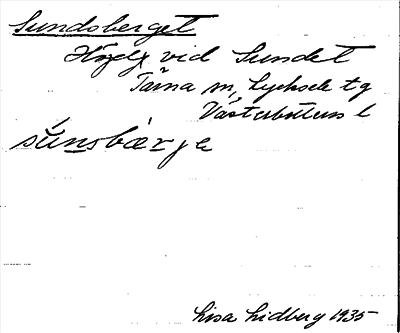 Sundsberget
Höjd vid Sundet
Tärna sn, Lycksele tg
Västerbottens l
sŭnsbærje
Lisa Lidberg 1935